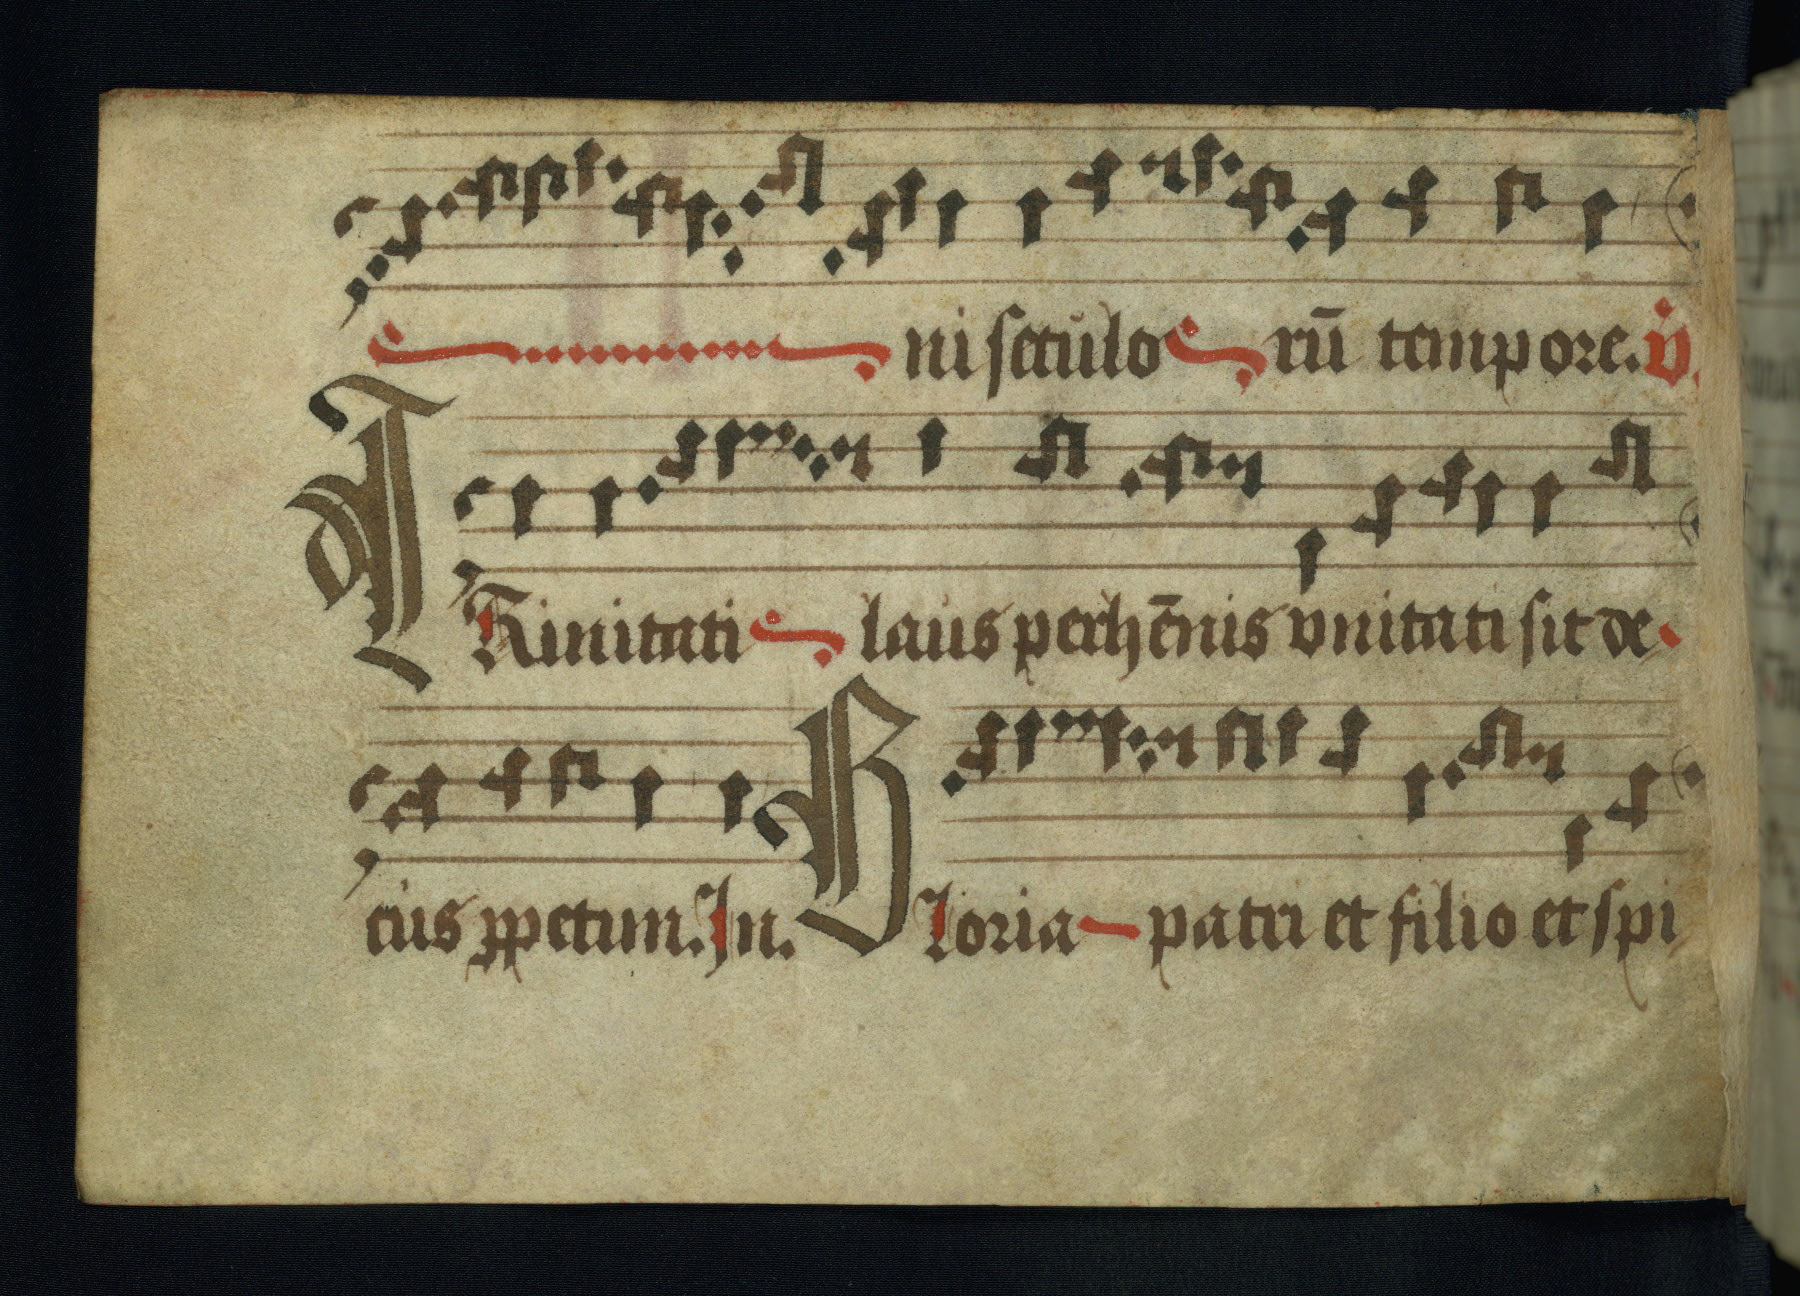 ni seculo rū tempore. V̊.
TRinitati laus perhēnis vnitati sit de
cus ꝑpetim. In. Gloria patri et filio et spi